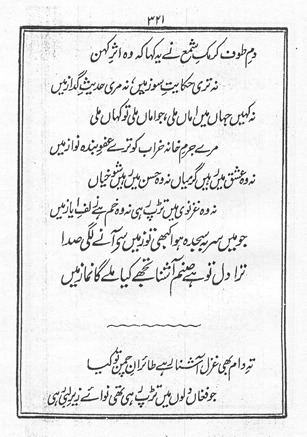 ۳۲۱
دمِ طوف کرمکِ شمع نے یہ کہا کہ وہ اثرِ کہن
نہ تری حکایتِ سوز میں، نہ مری حدیثِ گداز میں
نہ کہیں جہاں میں اماں ملی، جو اماں ملی تو کہاں ملی
مرے جرمِ خانہ خراب کو ترے عفوِ بندہ نواز میں
نہ وہ عشق میں رہیں گرمیاں نہ وہ حسن میں رہیں شوخیاں
نہ وہ غزنوی میں تڑپ رہی نہ وہ خم ہے زلفِ ایاز میں
جو میں سر بسجدہ ہوا کبھی تو زمیں سے آنے لگی صدا
ترا دل تو ہے صنم آشنا تجھے کیا ملے گا نماز میں
تہِ دام بھی غزل آشنا رہے طائرانِ چمن تو کیا
جو فغاں دلوں میں تڑپ رہی تھی نوائے زیرِ لبی رہی